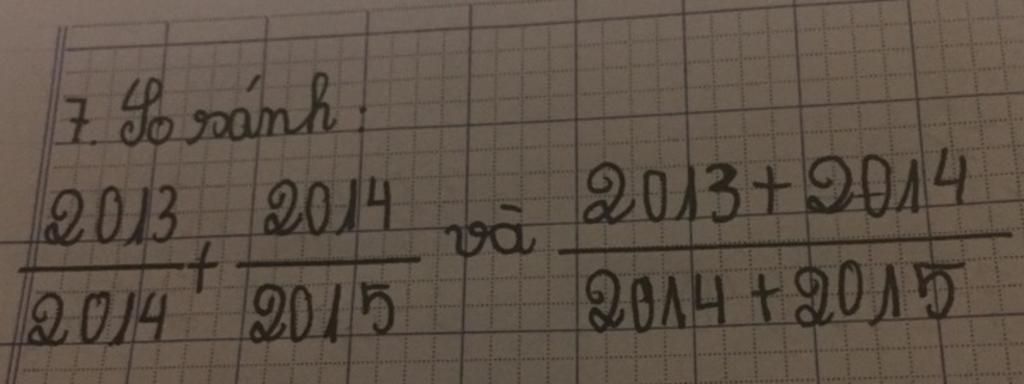 7. So sánh:
2013/2014 + 2014/2015 và (2013+2014)/(2014+2015)